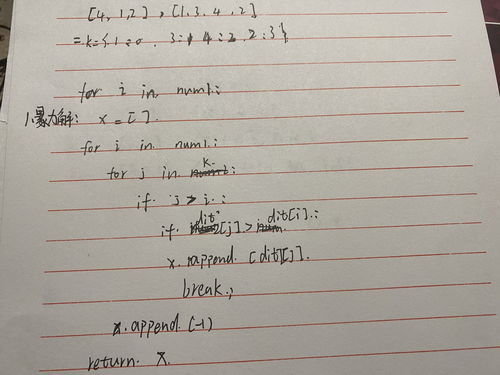 [4,1,2], [1,3,4,2]
=k={1:0, 3:1 4:2, 2:3}
for i in num1:
1.暴力解: x=[].
for i in num1:
for j in k:
if j>i:
if dit[j]>dit[i]:
x.append (dit[j].
break;
x.append (-1)
return x.